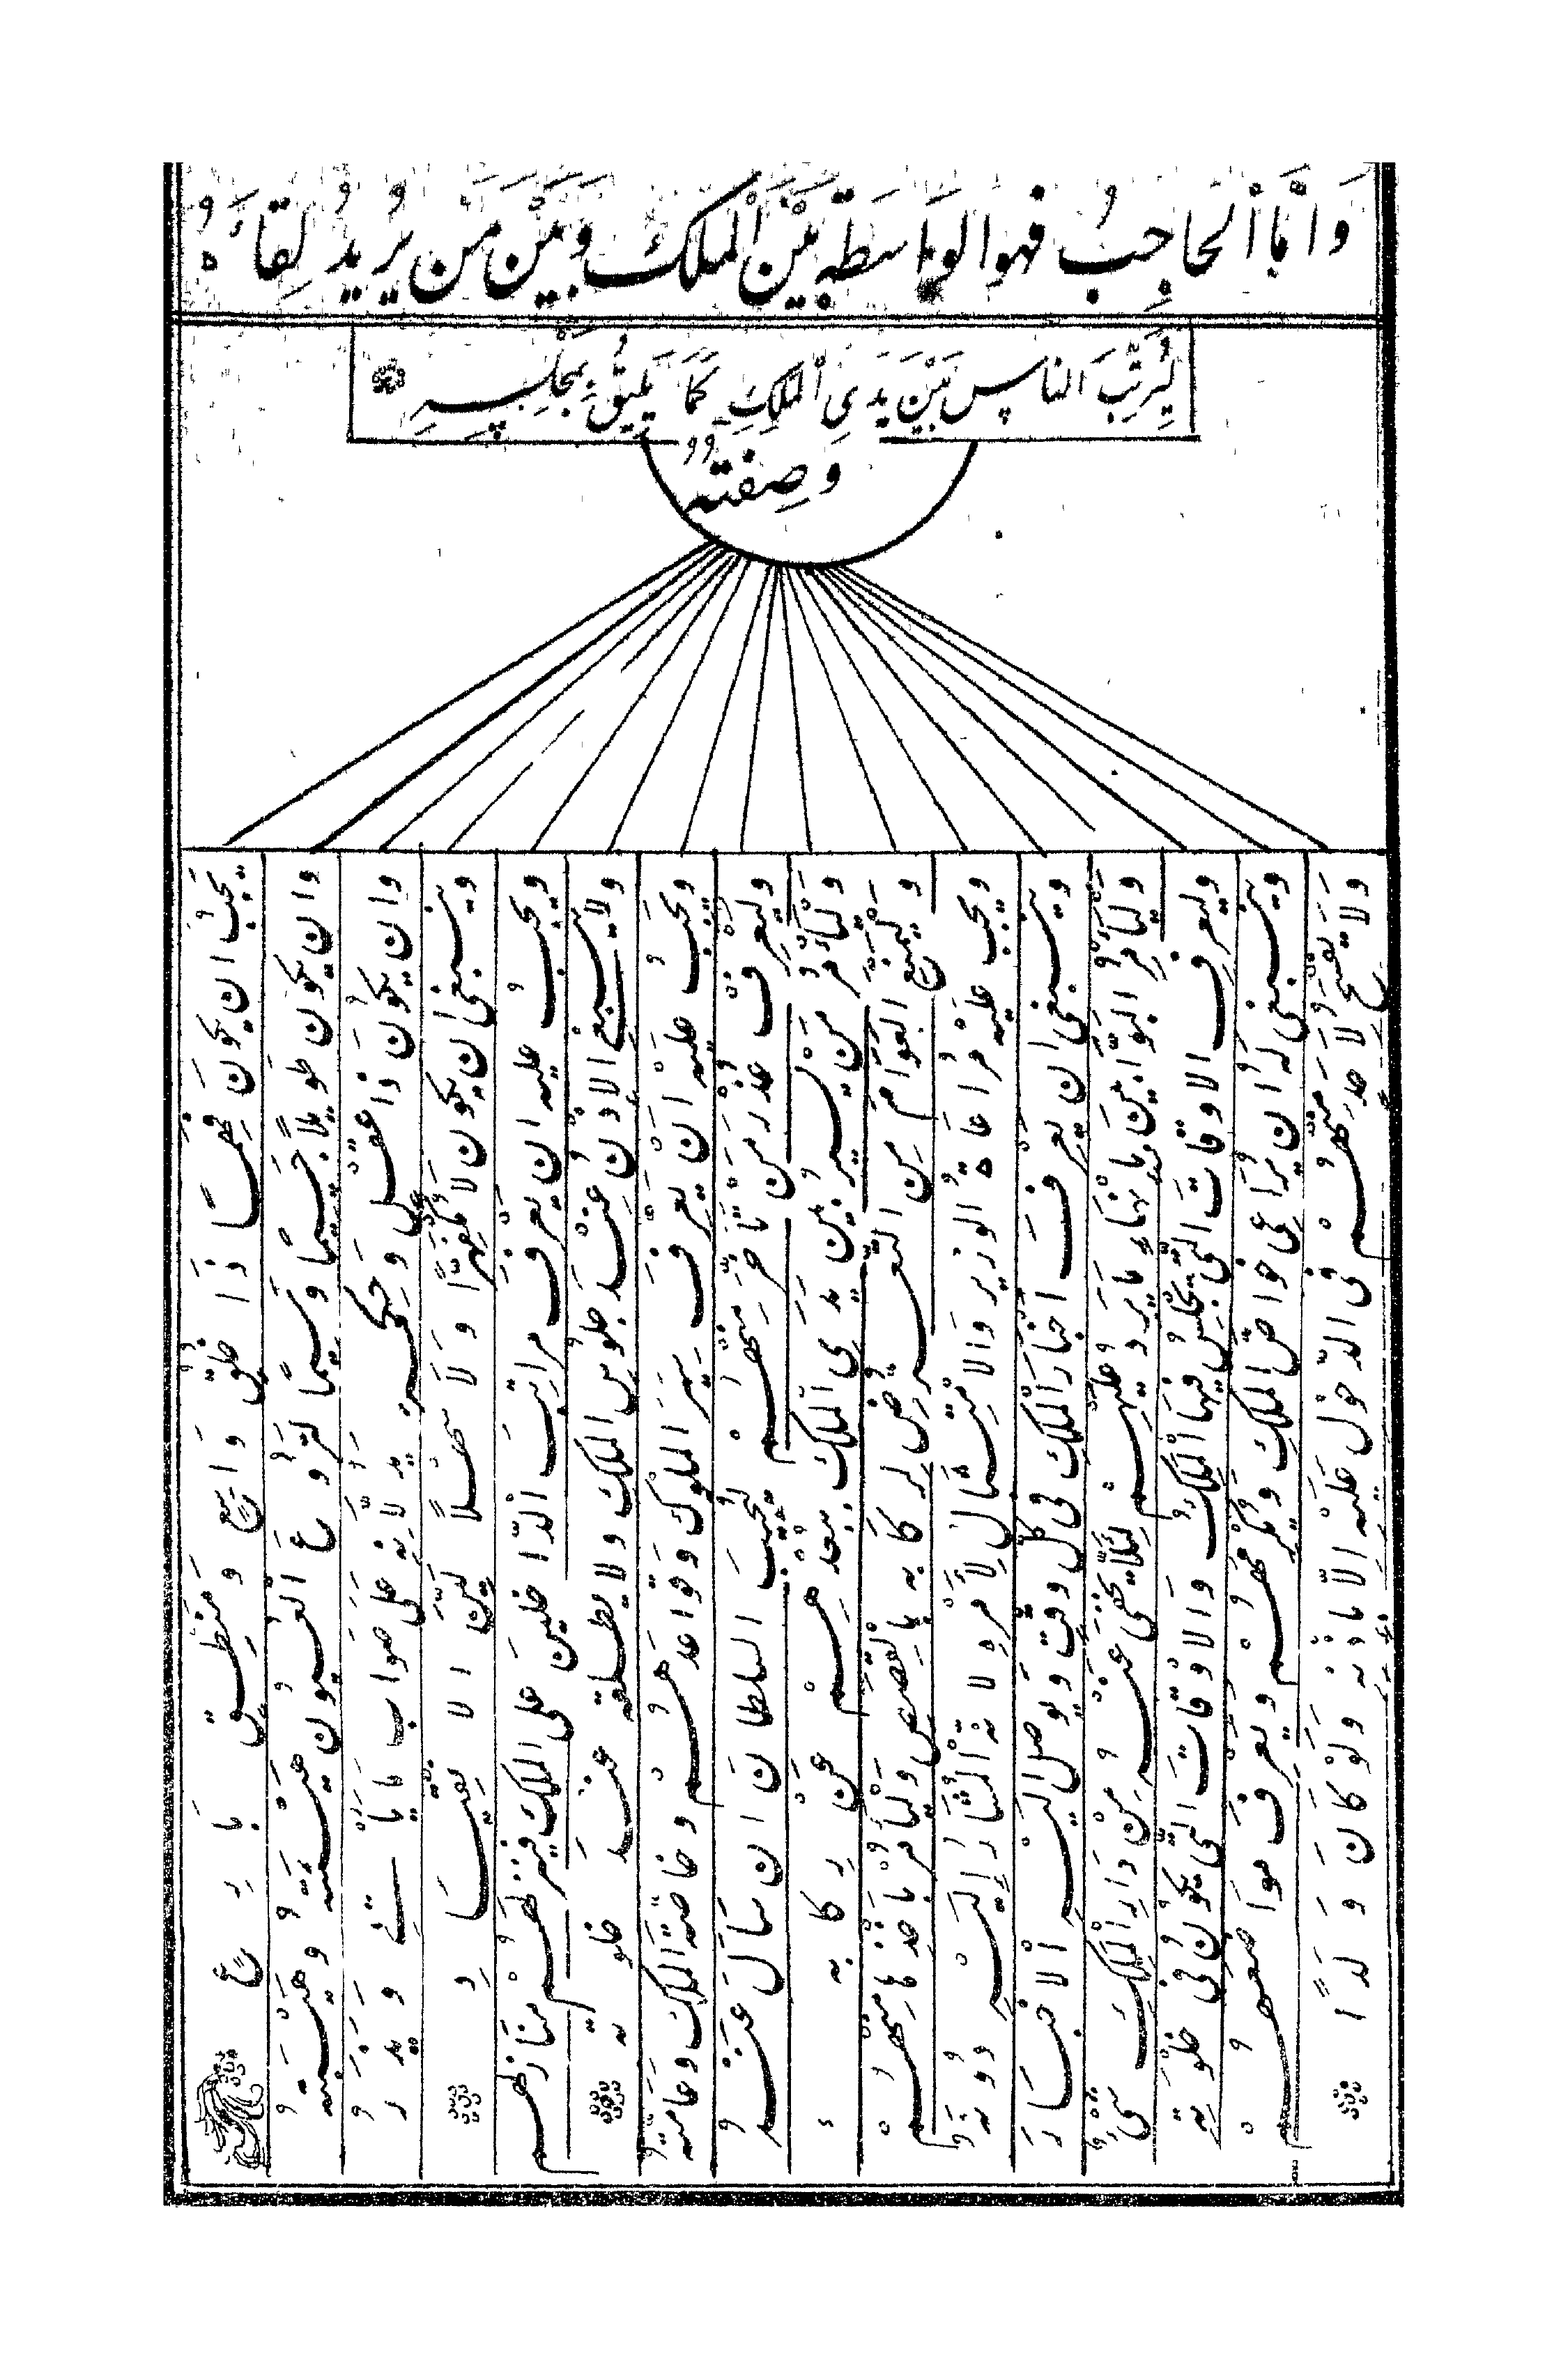 وَاَمَّا الْحَاجِبُ فهو الوَاسَطَة بَيْنَ الْمَلِكَ وَبَيْنَ مَن يُرِيدُ لِقَاءَهُ
لِيُرَتِّبَ الناس بَيْنَ يَدَىِ الْمَلِكِ كَمَا يَلِيقُ بِمَجْلِسِهِ
وَصِفَتُهُ
يَجبُ ان يكونَ فَهِمًا ذَا خُلُقٍ وَاسِعٍ وَمَنطِقٍ بَارِعٍ
وان يكون طَوِيلًا جَسِيمًا وَسِيمًا لتَرُوعَ الْعُيُون هَيْئَتُهُ وهَيْبَتُهُ
وان يكُونَ ذا عَقْلٍ وَحِكْمَة يَدُلَّانِهِ عَلَى صَوَاب مَا يَأْتِى وَيَذَرُ
وينبغى ان يكون لَا مُكْفَهِرًّا وَلَا سَهْلًا لَيِّنَ الانْقِيَادِ
ويجبُ عليه ان يعْرِفَ مراتِبَ الدّاخلينَ على الملك فيُنزلَهُمْ مَنَازلَهم
ولا ينبغِى الاذْن عِنْدَ جلُوسِ الملكِ ولا يطلقه عندَ خلوته
ويجبُ علَيه اَنْ يَعْرِفَ سِيَرَ الملُوكَ وَقواعدَهُمْ وخاصّةَ الملِك وعَامَّتَهُ
وليعرِفْ عُذْرَ مَن تَأَخَّرَ مِنْهُمْ لِيُجِيبَ السلطَانَ ان سَأَلَ عَنْهُ
وَلْيَأْمُرْ مَنْ يسيرُ بين يَدَىِ الْمَلِكِ بِبُعْدِهِمْ عَنْ رِكابه
وَلْيَمْنَعِ العَوَامَّ مِن التّعرُّضِ لرِكَابه بِالْقِصَصِ وَلْيَأْمُرْ بأخْذِهَا مِنْهُمْ
ويجب عليْه مُراعَاةُ الوزير وَالامْتِثَالُ لِأَمْرِهِ لانّه الْمُشَارُ إِلَيْهِ دُونَهُ
وينبغى ان يَعْرِفَ اخْبَارَ الْمَلِكَ فى كُلِّ وَقْتٍ وَيُوصِلَ اليْهِ الْاخبَارَ
وليَأْمُرِ البَوَّابينَ بِانْهَاءِ مَا يَرِدُ عَلَيْهِمْ لِئَلَّا يَخْفَى عَنْهُ مِنْ دَارِ الْمَلِكَ شَىْءٌ
وليعرف الاوقاتَ التّى يَجْلِسُ فيهَا الْمَلِكُ وَالاوْقاتَ التّى يكُونُ فى خلْوَتِهِ
وينبغى لَهُ اَن يُرَاعِىَ خوَاصَّ المَلِكَ وَيُكْرِمَهُمْ ويَعْرِفَ موَاضعَهُم
وَلَا يَفْسَحْ لأَحَدٍ مِنْهُمْ فى الدّخولِ عَلَيْهِ الاّ بِاذْنِهِ وَلَوْ كَانَ وَلَدًا